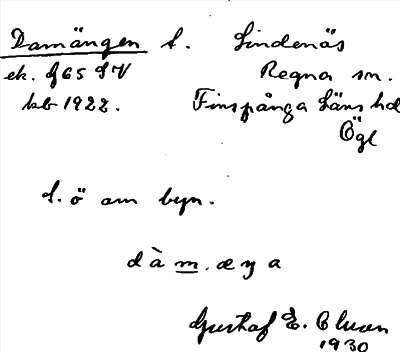 Damängen t. Lindenäs
ek. f 65 S V Regna sn.
kb 1922. Finspånga läns hd
Ögl
S. ö om byn.
dà m. æŋa
Gustaf E. Olsson
1930